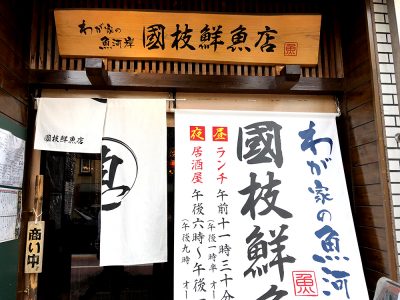 わが家の
魚河岸
國枝鮮魚店
魚
國枝鮮魚店
商い中
わが家の魚河
國枝鮮魚
魚
昼 ランチ 午前十一時三十分
(午後一時半 オー
夜 居酒屋 午後六時〜午後十
(午後九時 オー